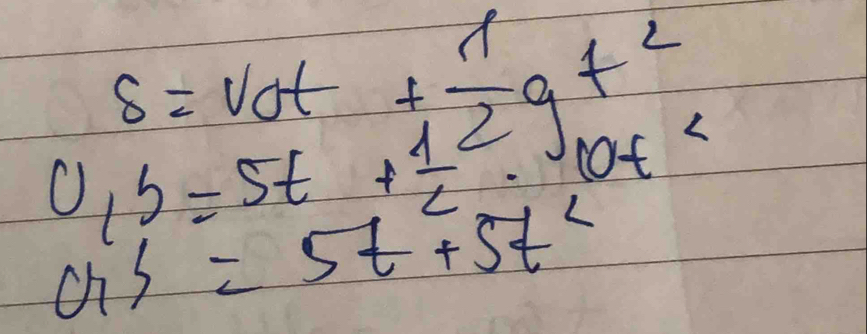 s = v0t + 1/2 gt²
0,5 = 5t + 1/2 · 10t²
0,5 = 5t + 5t²